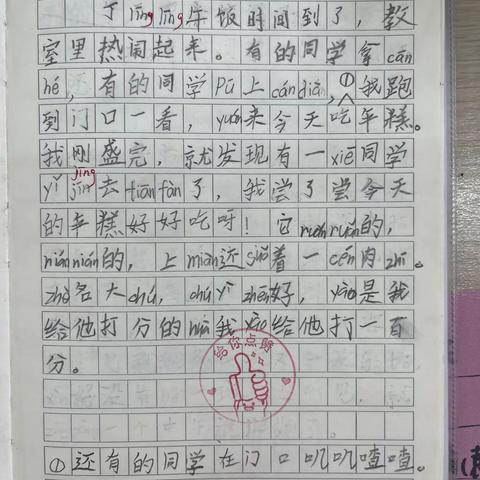 丁líng líng午饭时间到了，教
室里热闹起来。有的同学拿cān
hé，有的同学pū上cándiàn，①我跑
到门口一看，yuán来今天吃年糕。
我刚盛完，就发现有一xiē同学
yǐ jing去tiānfàn了，我尝了尝今天
的年糕好好吃呀！它ruǎnruǎn的，
niánnián的，上miàn还 着一cén肉zhī。
名大chú，chú yì zhēn好，yào是我
给他打分的 我 给他打一百
分。
给你点赞
①还有的同学在门口叽叽喳喳。